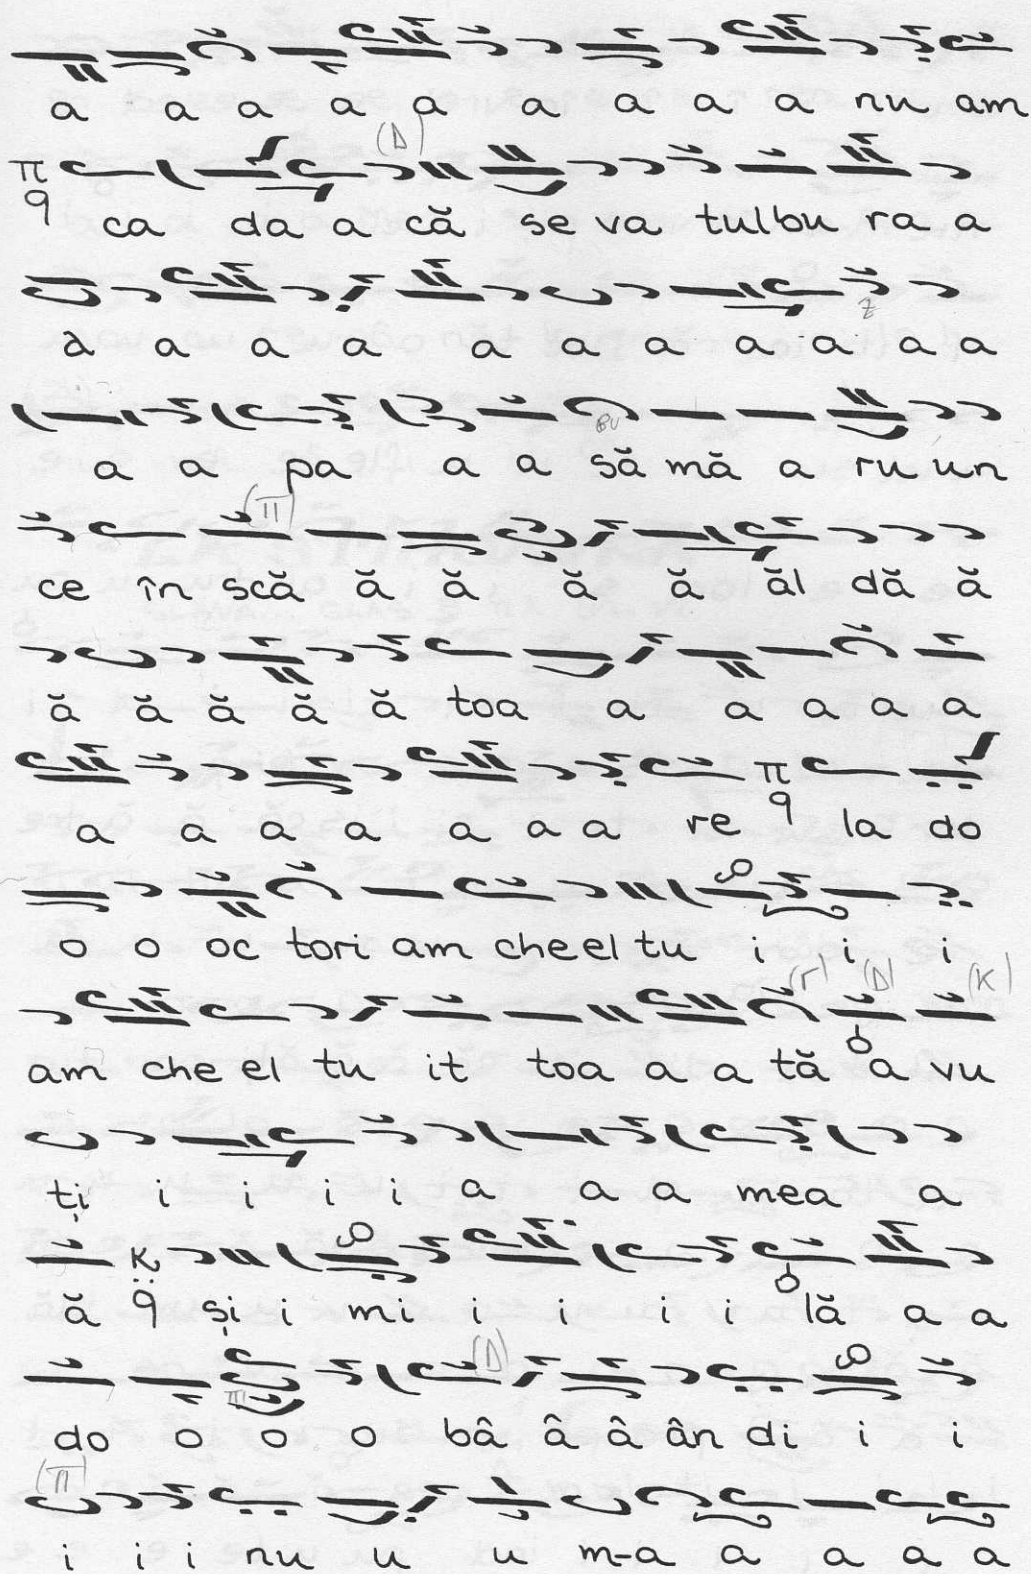 a a a a a a a a a nu am
(Δ)
π q ca da a că se va tulbu ra a
a a a a a a a a a a a
Z
a a pa a a să mă a ru un
βυ
(Π)
ce în scă ă ă ă ă ăl dă ă
ă ă ă ă ă toa a a a a a
a a a a a a a re π q la do
o o oc tori am che el tu i i i
(Γ) (Δ) (K)
am che el tu it toa a a tă a vu
ți i i i i a a a mea a
ă κ q și i mi i i i i lă a a
(Δ)
π
do o o o bâ â â ân di i i
(Π)
i i i nu u u m-a a a a a